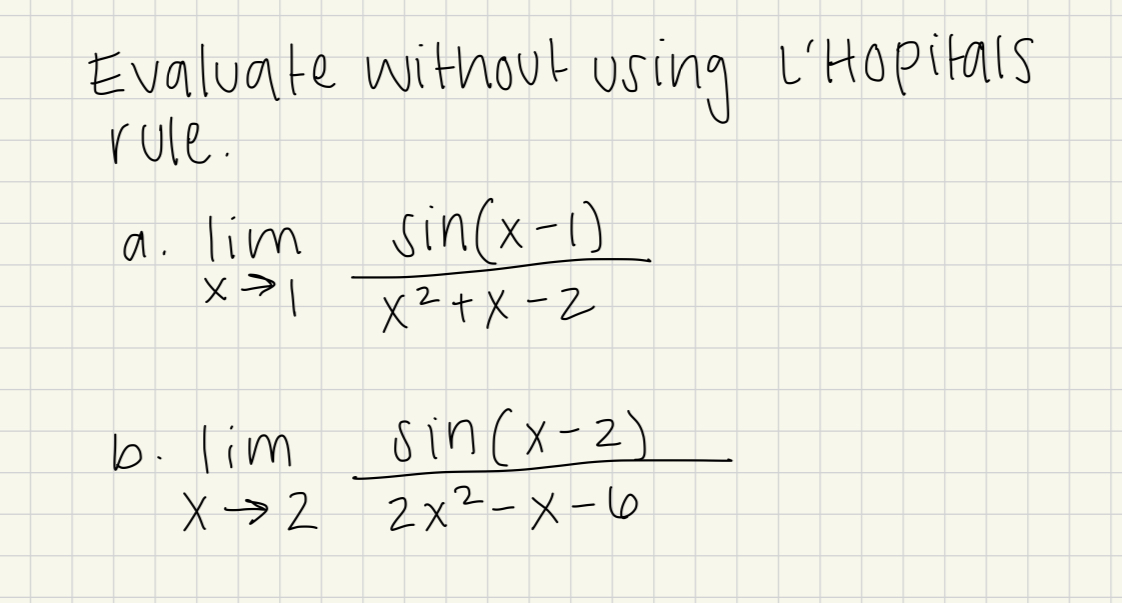 Evaluate without using L'Hopitals
rule.
a. lim sin(x-1)
x→1 x²+x-2
b. lim sin(x-2)
x→2 2x²-x-6